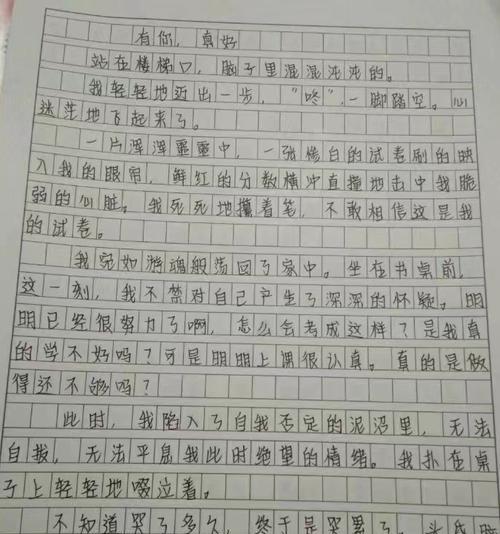 有你，真好
站在楼梯口，脑子里混混沌沌的。
我轻轻地迈出一步，“咚”，一脚踏空。心
迷茫地飞起来了。
一片浑浑噩噩中，一张惨白的试卷刷的映
入我的眼帘，鲜红的分数横冲直撞地击中我脆
弱的心脏。我死死地攥着笔，不敢相信这是我
的试卷。
我宛如游魂般荡回了家中。坐在书桌前，
这一刻，我不禁对自己产生了深深的怀疑。明
明已经很努力了啊，怎么会考成这样？是我真
的学不好吗？可是明明上课很认真。真的是做
得还不够吗？
此时，我陷入了自我否定的泥沼里，无法
自拔，无法平息我此时绝望的情绪。我扑在桌
子上轻轻地啜泣着。
不知道哭了多久，终于是哭累了